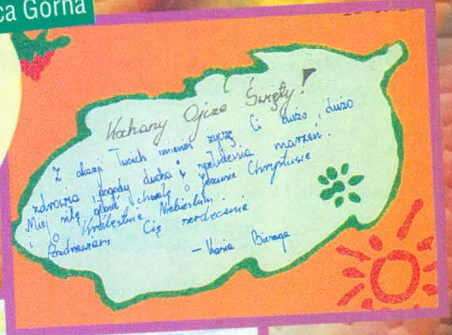 ca Górna
Kochany Ojcze Święty!
Z okazji Twoich imienin życzę Ci dużo, dużo
zdrowia, pogody ducha i spełnienia marzeń.
Miej siłę głosić chwałę o Jezusie Chrystusie
i o Królestwie Niebieskim.
Pozdrawiam Cię serdecznie.
- Kasia